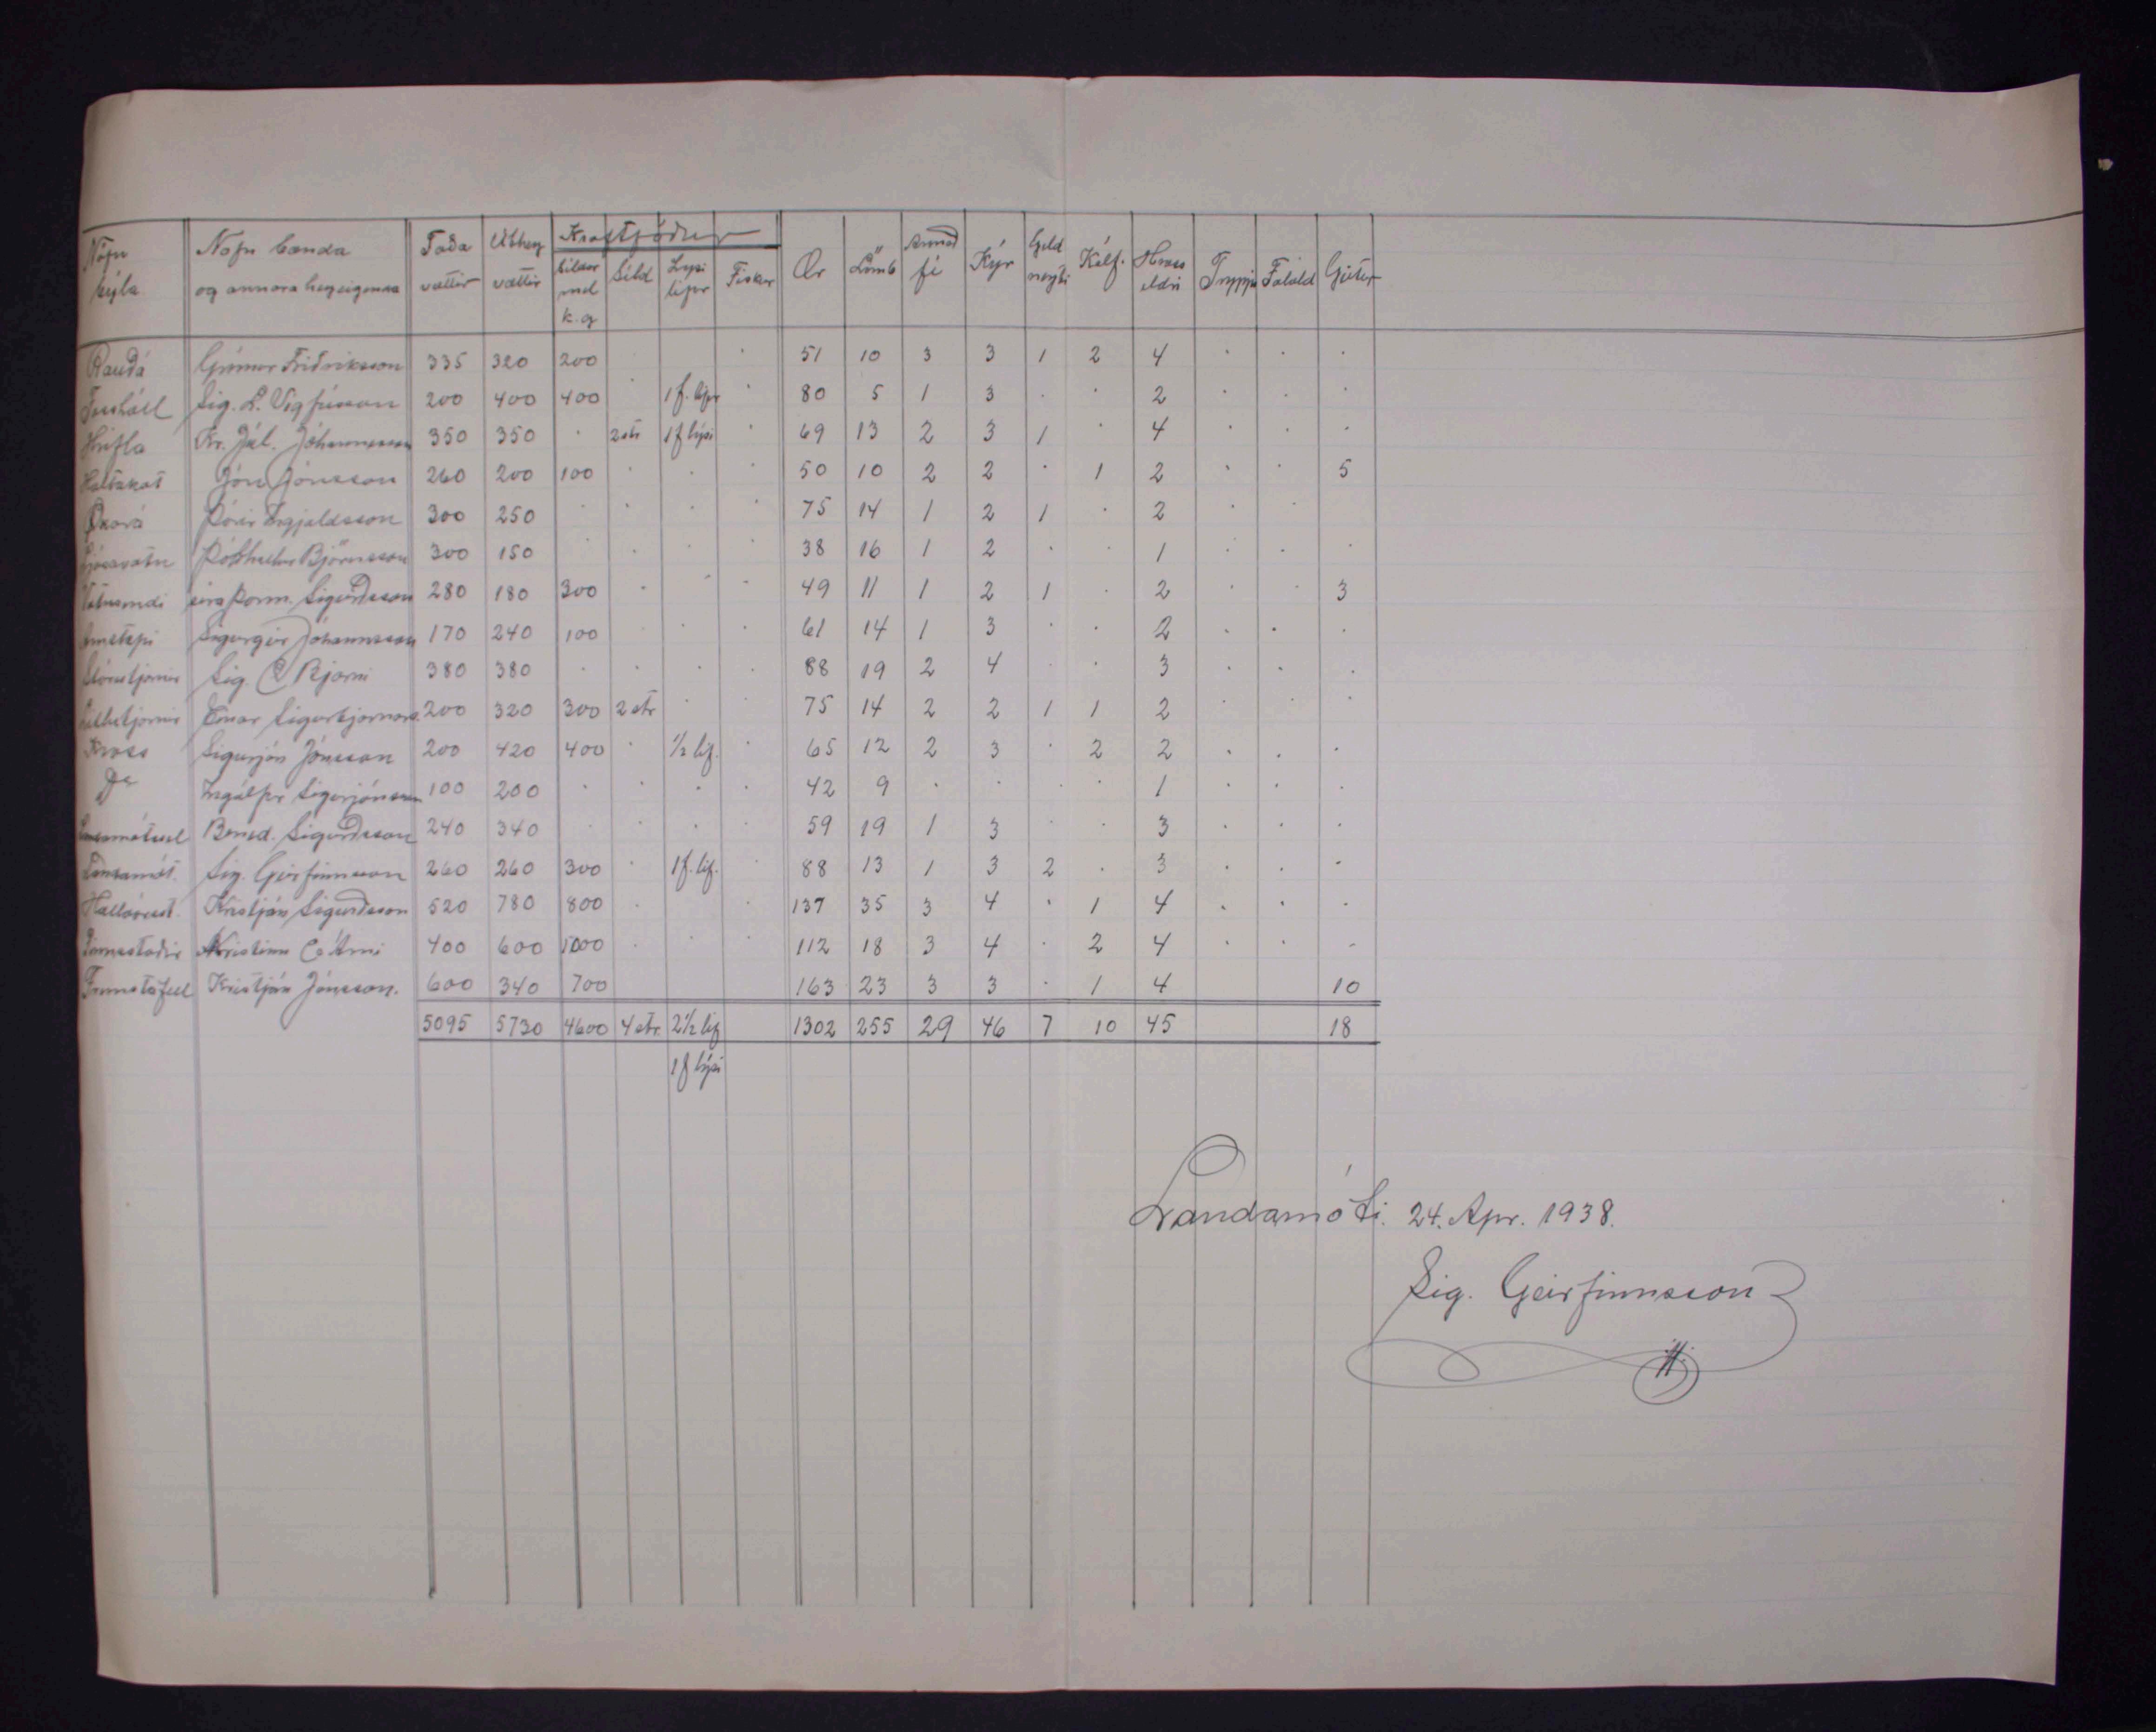 Nöfn býla Nöfn bænda og annara heyeigenda Taða vættir Úthey vættir Kraftfóður Síldar mél k.g Síld Lýsi lifur Fiskur Ær Lömb Annað fé Kýr Geld neyti Kálf. Hross eldri Tryppi Folöld Geitur
Rauðá Grímur Friðriksson 335 320 200 · · 51 10 3 3 1 2 4 · · ·
Fosshóll Sig. L. Vigfússon 200 400 400 · 1 f. lifur · 80 5 1 3 · · 2 · · ·
Hrifla Kr. Júl. Jóhannesson 350 350 · 2 str 1 f lýsi · 69 13 2 3 1 · 4 · · ·
Holtakot Jón Jónsson 260 200 100 · · · 50 10 2 2 · 1 2 · · 5
Öxará Þórir Ingjaldsson 300 250 · · · · 75 14 1 2 1 · 2 · ·
Ljósavatn Þórhallur Björnsson 300 150 · · · · 38 16 1 2 · · 1 · · ·
Vatnsendi séra Þorm. Sigurðsson 280 180 300 · · · 49 11 1 2 1 · 2 · · 3
Arnstapi Sigurgeir Jóhannesson 170 240 100 · · · 61 14 1 3 · · 2 · · ·
Stórutjarnir Sig. & Bjarni 380 380 · · · · 88 19 2 4 · · 3 · · ·
Litlutjarnir Einar Sigurbjarnars. 200 320 300 2 str · · 75 14 2 2 1 1 2 · · ·
Kross Sigurjón Jónsson 200 420 400 · 1/2 lif. · 65 12 2 3 · 2 2 · · ·
Do Ingólfur Sigurjónsson 100 200 · · · · 42 9 · · · · 1 · · ·
Bened. Sigurðsson 240 340 · · · · 59 19 1 3 · · 3 · · ·
Landamót. Sig. Geirfinnsson 260 260 300 · 1 f. lif. · 88 13 1 3 2 · 3 · · ·
Hallóvist. Kristján Sigurðsson 520 780 800 · · 137 35 3 4 · 1 4 · · ·
Finnsstaðir Kristinn & Árni 400 600 1000 · · · 112 18 3 4 · 2 4 · · ·
Finnstafell Kristján Jónsson. 600 340 700 163 23 3 3 · 1 4 10
5095 5730 4600 4 str. 2 1/2 lif 1302 255 29 46 7 10 45 18
1 f lýsi
Landamóti. 24. Apr. 1938.
Sig. Geirfinnsson